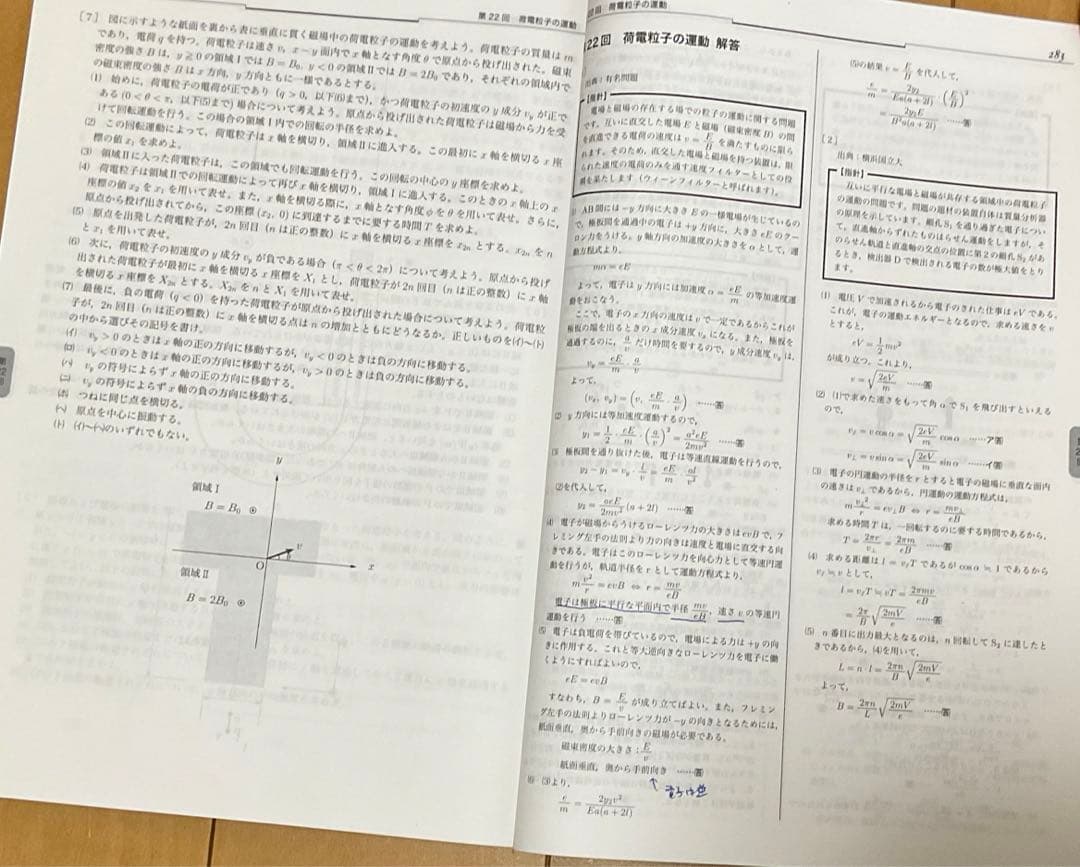 第22回 荷電粒子の運動
[7] 図に示すような紙面を裏から表に垂直に貫く磁場中の荷電粒子の運動を考えよう。荷電粒子の質量は m
であり、電荷 q を持つ。荷電粒子は速さ v、x－y 面内で x 軸となす角度 θ で原点から投げ出された。磁束
密度の強さ B は、y≧0 の領域Ⅰでは B＝B₀、y＜0 の領域Ⅱでは B＝2B₀ であり、それぞれの領域内で
の磁束密度の強さ B は x 方向、y 方向ともに一様であるとする。
(1) 始めに、荷電粒子の電荷が正であり (q＞0、以下(6)まで)、かつ荷電粒子の初速度の y 成分 v_y が正で
ある (0＜θ＜π、以下(5)まで) 場合について考えよう。原点から投げ出された荷電粒子は磁場から力を受
けて回転運動を行う。この場合の領域Ⅰ内での回転の半径を求めよ。
(2) この回転運動によって、荷電粒子は x 軸を横切り、領域Ⅱに進入する。この最初に x 軸を横切る x 座
標の値 x₁ を求めよ。
(3) 領域Ⅱに入った荷電粒子は、この領域でも回転運動を行う。この回転の中心の y 座標を求めよ。
(4) 荷電粒子は領域Ⅱでの回転運動によって再び x 軸を横切り、領域Ⅰに進入する。このときの x 軸上の x
座標の値 x₂ を x₁ を用いて表せ。また、x 軸を横切る際に、x 軸となす角度 φ を θ を用いて表せ。さらに、
原点から投げ出されてから、この座標 (x₂, 0) に到達するまでに要する時間 T を求めよ。
(5) 原点を出発した荷電粒子が、2n 回目 (n は正の整数) に x 軸を横切る x 座標を x₂ₙ とする。x₂ₙ を n
と x₁ を用いて表せ。
(6) 次に、荷電粒子の初速度の y 成分 v_y が負である場合 (π＜θ＜2π) について考えよう。原点から投げ
出された荷電粒子が最初に x 軸を横切る x 座標を X₁ とし、荷電粒子が 2n 回目 (n は正の整数) に x 軸
を横切る x 座標を X₂ₙ とする。X₂ₙ を n と X₁ を用いて表せ。
(7) 最後に、負の電荷 (q＜0) を持った荷電粒子が原点から投げ出された場合について考えよう。荷電粒
子が、2n 回目 (n は正の整数) に x 軸を横切る点は n の増加とともにどうなるか。正しいものを(イ)～(ト)
の中から選びその記号を書け。
(イ) v_y＞0 のときは x 軸の正の方向に移動するが、v_y＜0 のときは負の方向に移動する。
(ロ) v_y＜0 のときは x 軸の正の方向に移動するが、v_y＞0 のときは負の方向に移動する。
(ハ) v_y の符号によらず x 軸の正の方向に移動する。
(ニ) v_y の符号によらず x 軸の負の方向に移動する。
(ホ) つねに同じ点を横切る。
(ヘ) 原点を中心に振動する。
(ト) (イ)～(ヘ)のいずれでもない。
y
領域Ⅰ
B＝B₀
v
θ
O
x
領域Ⅱ
B＝2B₀
荷電粒子の運動
22回 荷電粒子の運動 解答
有名問題
【指針】
電場と磁場の存在する場での粒子の運動に関する問題
です。互いに直交した電場 E と磁場 (磁束密度 B) の間
を直進できる電荷の速度は v＝E/B を満たすものに限ら
れます。そのため、直交した電場と磁場を持つ装置は、限
られた速度の電荷のみを通す速度フィルターとしての役
割を果たします (ウィーンフィルターと呼ばれます)。
AB間には－y 方向に大きさ E の一様電場が生じているの
で、極板間を通過中の電子は＋y 方向に、大きさ eE のクー
ロン力をうける。y 軸方向の加速度の大きさを α として、運
動方程式より、
mα＝eE
よって、電子は y 方向には加速度 α＝eE/m の等加速度運
動をおこなう。
ここで、電子の x 方向の速度は v で一定であるからこれが
極板の端を出るときの x 成分速度 vₓ になる。また、極板を
通過するのに、a/v だけ時間を要するので、y 成分速度 v_y は、
v_y＝eE/m・a/v
よって、
(vₓ, v_y)＝(v, eE/m・a/v) ……答
(2) y 方向には等加速度運動するので、
y₁＝1/2・eE/m・(a/v)²＝a²eE/2mv² ……答
(3) 極板間を通り抜けた後、電子は等速直線運動を行うので、
y₂－y₁＝v_y・l/v＝eE/m・al/v²
(2)を代入して、
y₂＝aeE/2mv²(a＋2l) ……答
(4) 電子が磁場からうけるローレンツ力の大きさは evB で、フ
レミング左手の法則より力の向きは速度と電場に直交する向
きである。電子はこのローレンツ力を向心力として等速円運
動を行うが、軌道半径を r として運動方程式より、
m v²/r＝evB ⇔ r＝mv/eB
電子は極板に平行な平面内で半径 mv/eB、速さ v の等速円
運動を行う ……答
(5) 電子は負電荷を帯びているので、電場による力は＋y の向
きに作用する。これと等大逆向きなローレンツ力を電子に働
くようにすればよいので、
eE＝evB
すなわち、B＝E/v が成り立てばよい。また、フレミン
グ左手の法則よりローレンツ力が－y の向きとなるためには、
紙面垂直、奥から手前向きの磁場が必要である。
磁束密度の大きさ：E/v
紙面垂直、奥から手前向き ……答
(6) (3)より、
e/m＝2y₂v²/Ea(a＋2l)
281
(5)の結果 v＝E/B を代入して、
e/m＝2y₂/Ea(a＋2l)・(E/B)²
＝2y₂E/B²a(a＋2l) ……答
[2]
出典：横浜国立大
【指針】
互いに平行な電場と磁場が共存する領域中の荷電粒子
の運動の問題です。問題の題材の装置自体は質量分析器
の原理を示しています。細孔 S₁ を通り過ぎた電子につい
て、直進軸からずれたものはらせん運動をしますが、そ
のらせん軌道と直進軸の交点の位置に第2の細孔 S₂ があ
るとき、検出器 D で検出される電子の数が極大値をとり
ます。
(1) 電圧 V で加速されるから電子のされた仕事は eV である。
これが、電子の運動エネルギーとなるので、求める速さを v
とすると、
eV＝1/2 mv²
が成り立つ。これより、
v＝√(2eV/m) ……答
(2) (1)で求めた速さをもって角 α で S₁ を飛び出すといえる
ので、
v_∥＝v cos α＝√(2eV/m) cos α ……ア答
v_⊥＝v sin α＝√(2eV/m) sin α ……イ答
(3) 電子の円運動の半径を r とすると電子の磁場に垂直な面内
の速さは v_⊥ であるから、円運動の運動方程式は、
m v_⊥²/r＝ev_⊥B ⇔ r＝mv_⊥/eB
求める時間 T は、一回転するのに要する時間であるから、
T＝2πr/v_⊥＝2πm/eB ……答
(4) 求める距離は l＝v_∥T であるが cos α≒1 であるから
v_∥≒v として、
l＝v_∥T≒vT＝2πmv/eB
＝2π/B √(2mV/e) ……答
(5) n 番目に出力最大となるのは、n 回転して S₂ に達したと
きであるから、(4)を用いて、
L＝n・l＝2πn/B √(2mV/e)
よって、
B＝2πn/L √(2mV/e) ……答